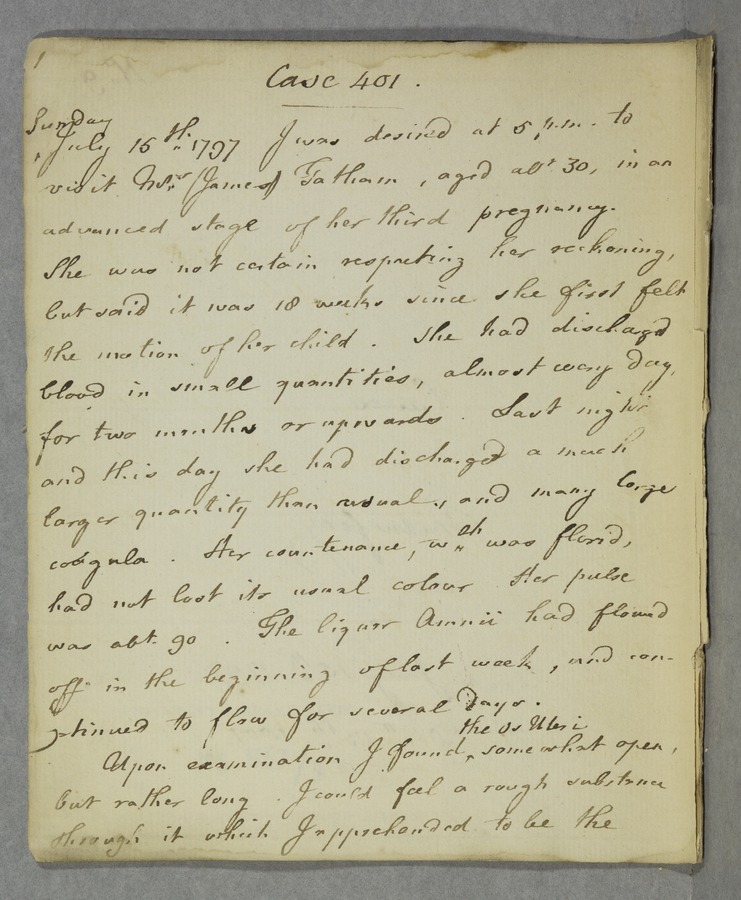 1
Case 401.
Sunday
July 15th. 1797 I was desired at 5 p.m. to
visit Mrs. (James) Tatham, aged abt. 30, in an
advanced stage of her third pregnancy.
She was not certain respecting her reckoning,
but said it was 18 weeks since she first felt
the motion of her child. She had discharged
blood in small quantities, almost every day,
for two months or upwards. Last night
and this day she had discharged a much
larger quantity than usual, and many large
coagula. Her countenance, wch was florid,
had not lost its usual colour. Her pulse
was abt. 90. The liquor Amnii had flowed
off in the beginning of last week, and con-
tinued to flow for several days.
the Os Uteri
Upon examination I found, somewhat open,
but rather long. I could feel a rough substance
through it which I apprehended to be the